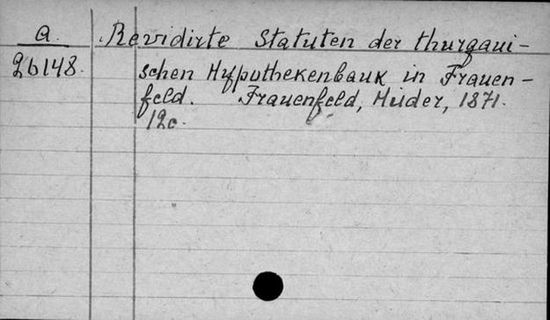 a. Revidirte Statuten der thurgaui-
26148. schen Hypothekenbank in Frauen-
feld. Frauenfeld, Huder, 1871.
12c.